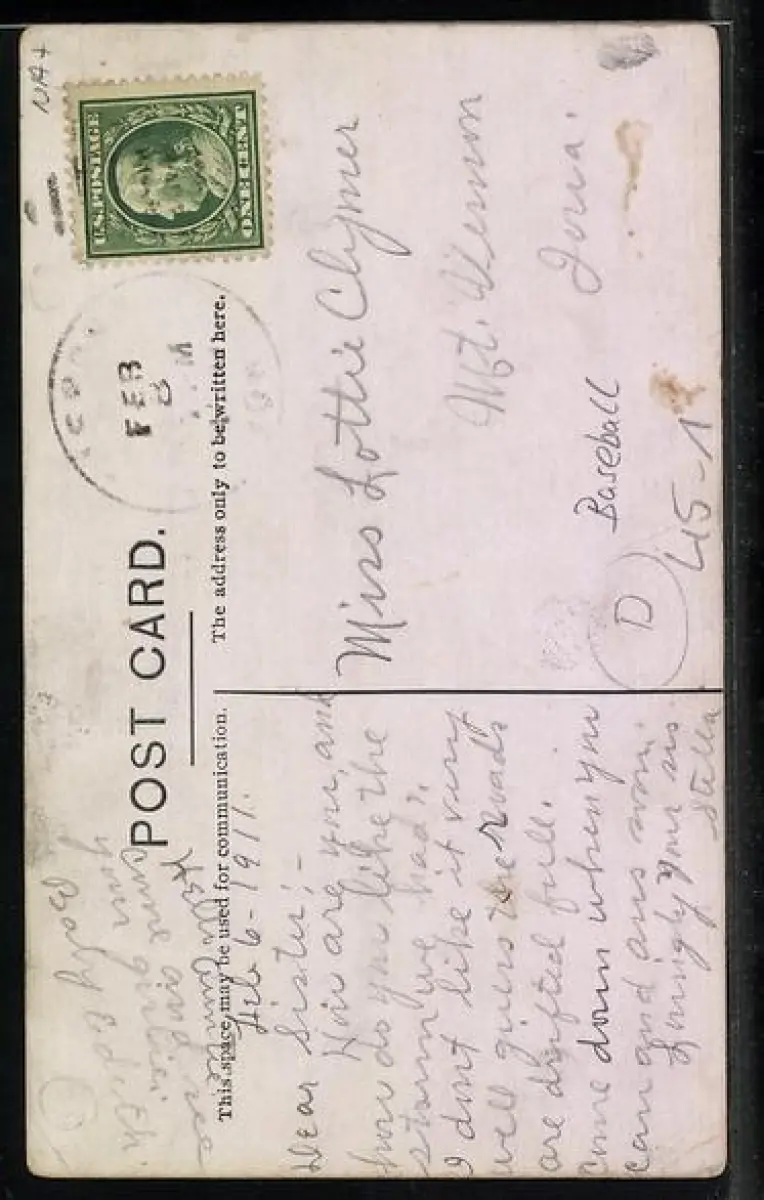 POST CARD.
This space may be used for communication.
The address only to be written here.
U.S. POSTAGE
ONE CENT
FEB
M
Feb 6 - 1911.
Dear Sister; -
How are you, and
how do you like the
storm we had?
I dont like it very
well guess the roads
are drifted full.
Come down when you
can and ans soon.
Lovingly your sis.
Stella
Miss Lottie Clymer
Mt. Vernon
Iowa.
Baseball
D
45-1